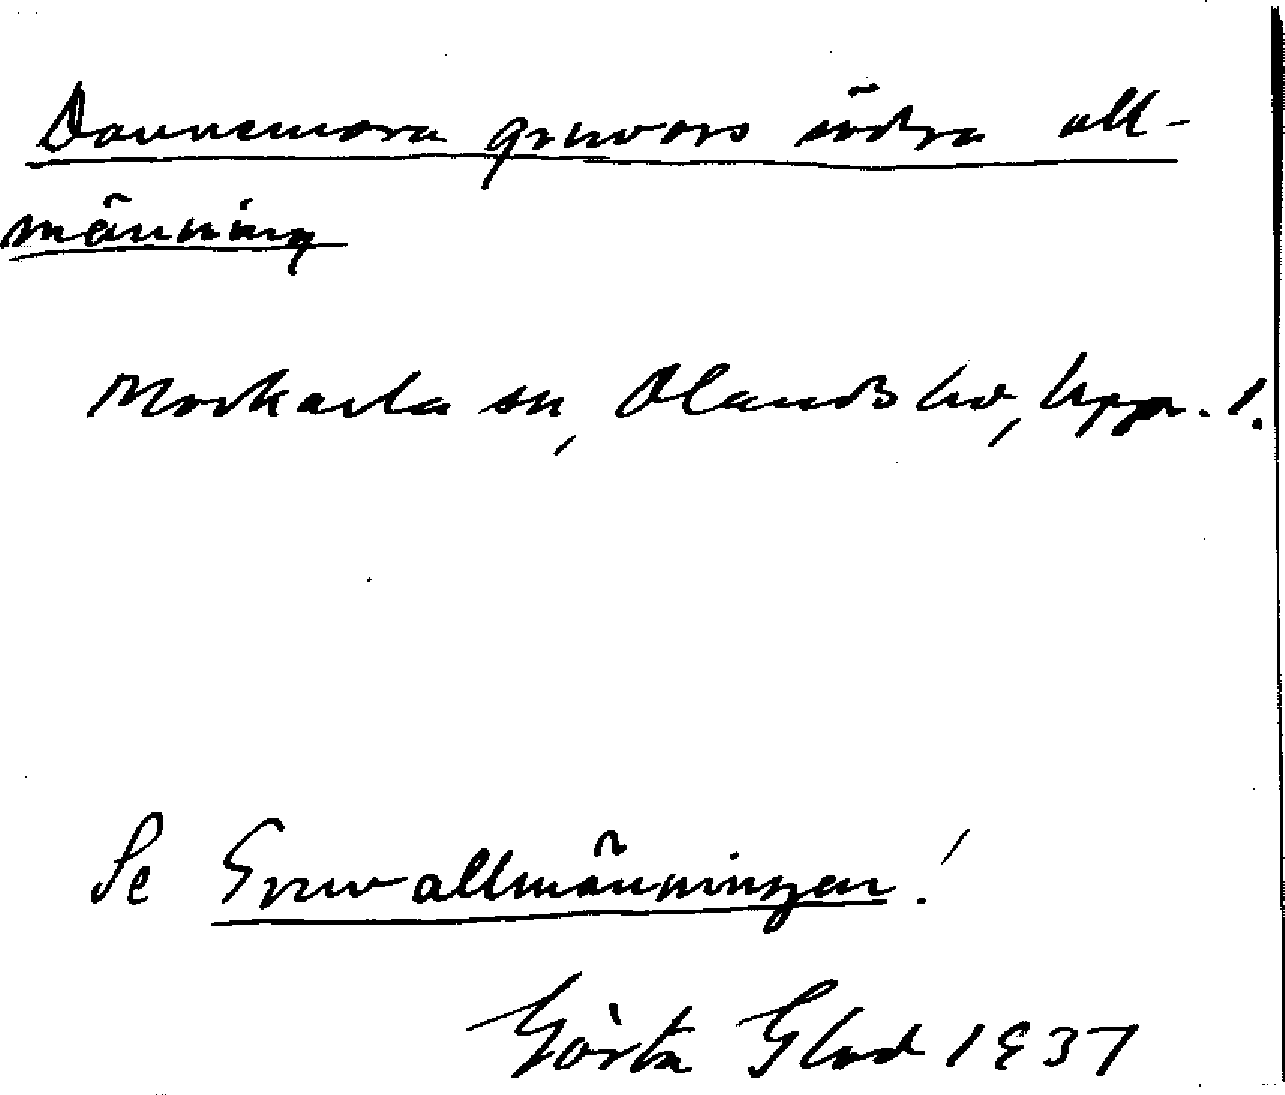 Dannemora gruvors södra all-
männing
Morkarla sn, Olands hd, Uppl. l.
Se Gruvallmänningen!
Gösta Glad 1937